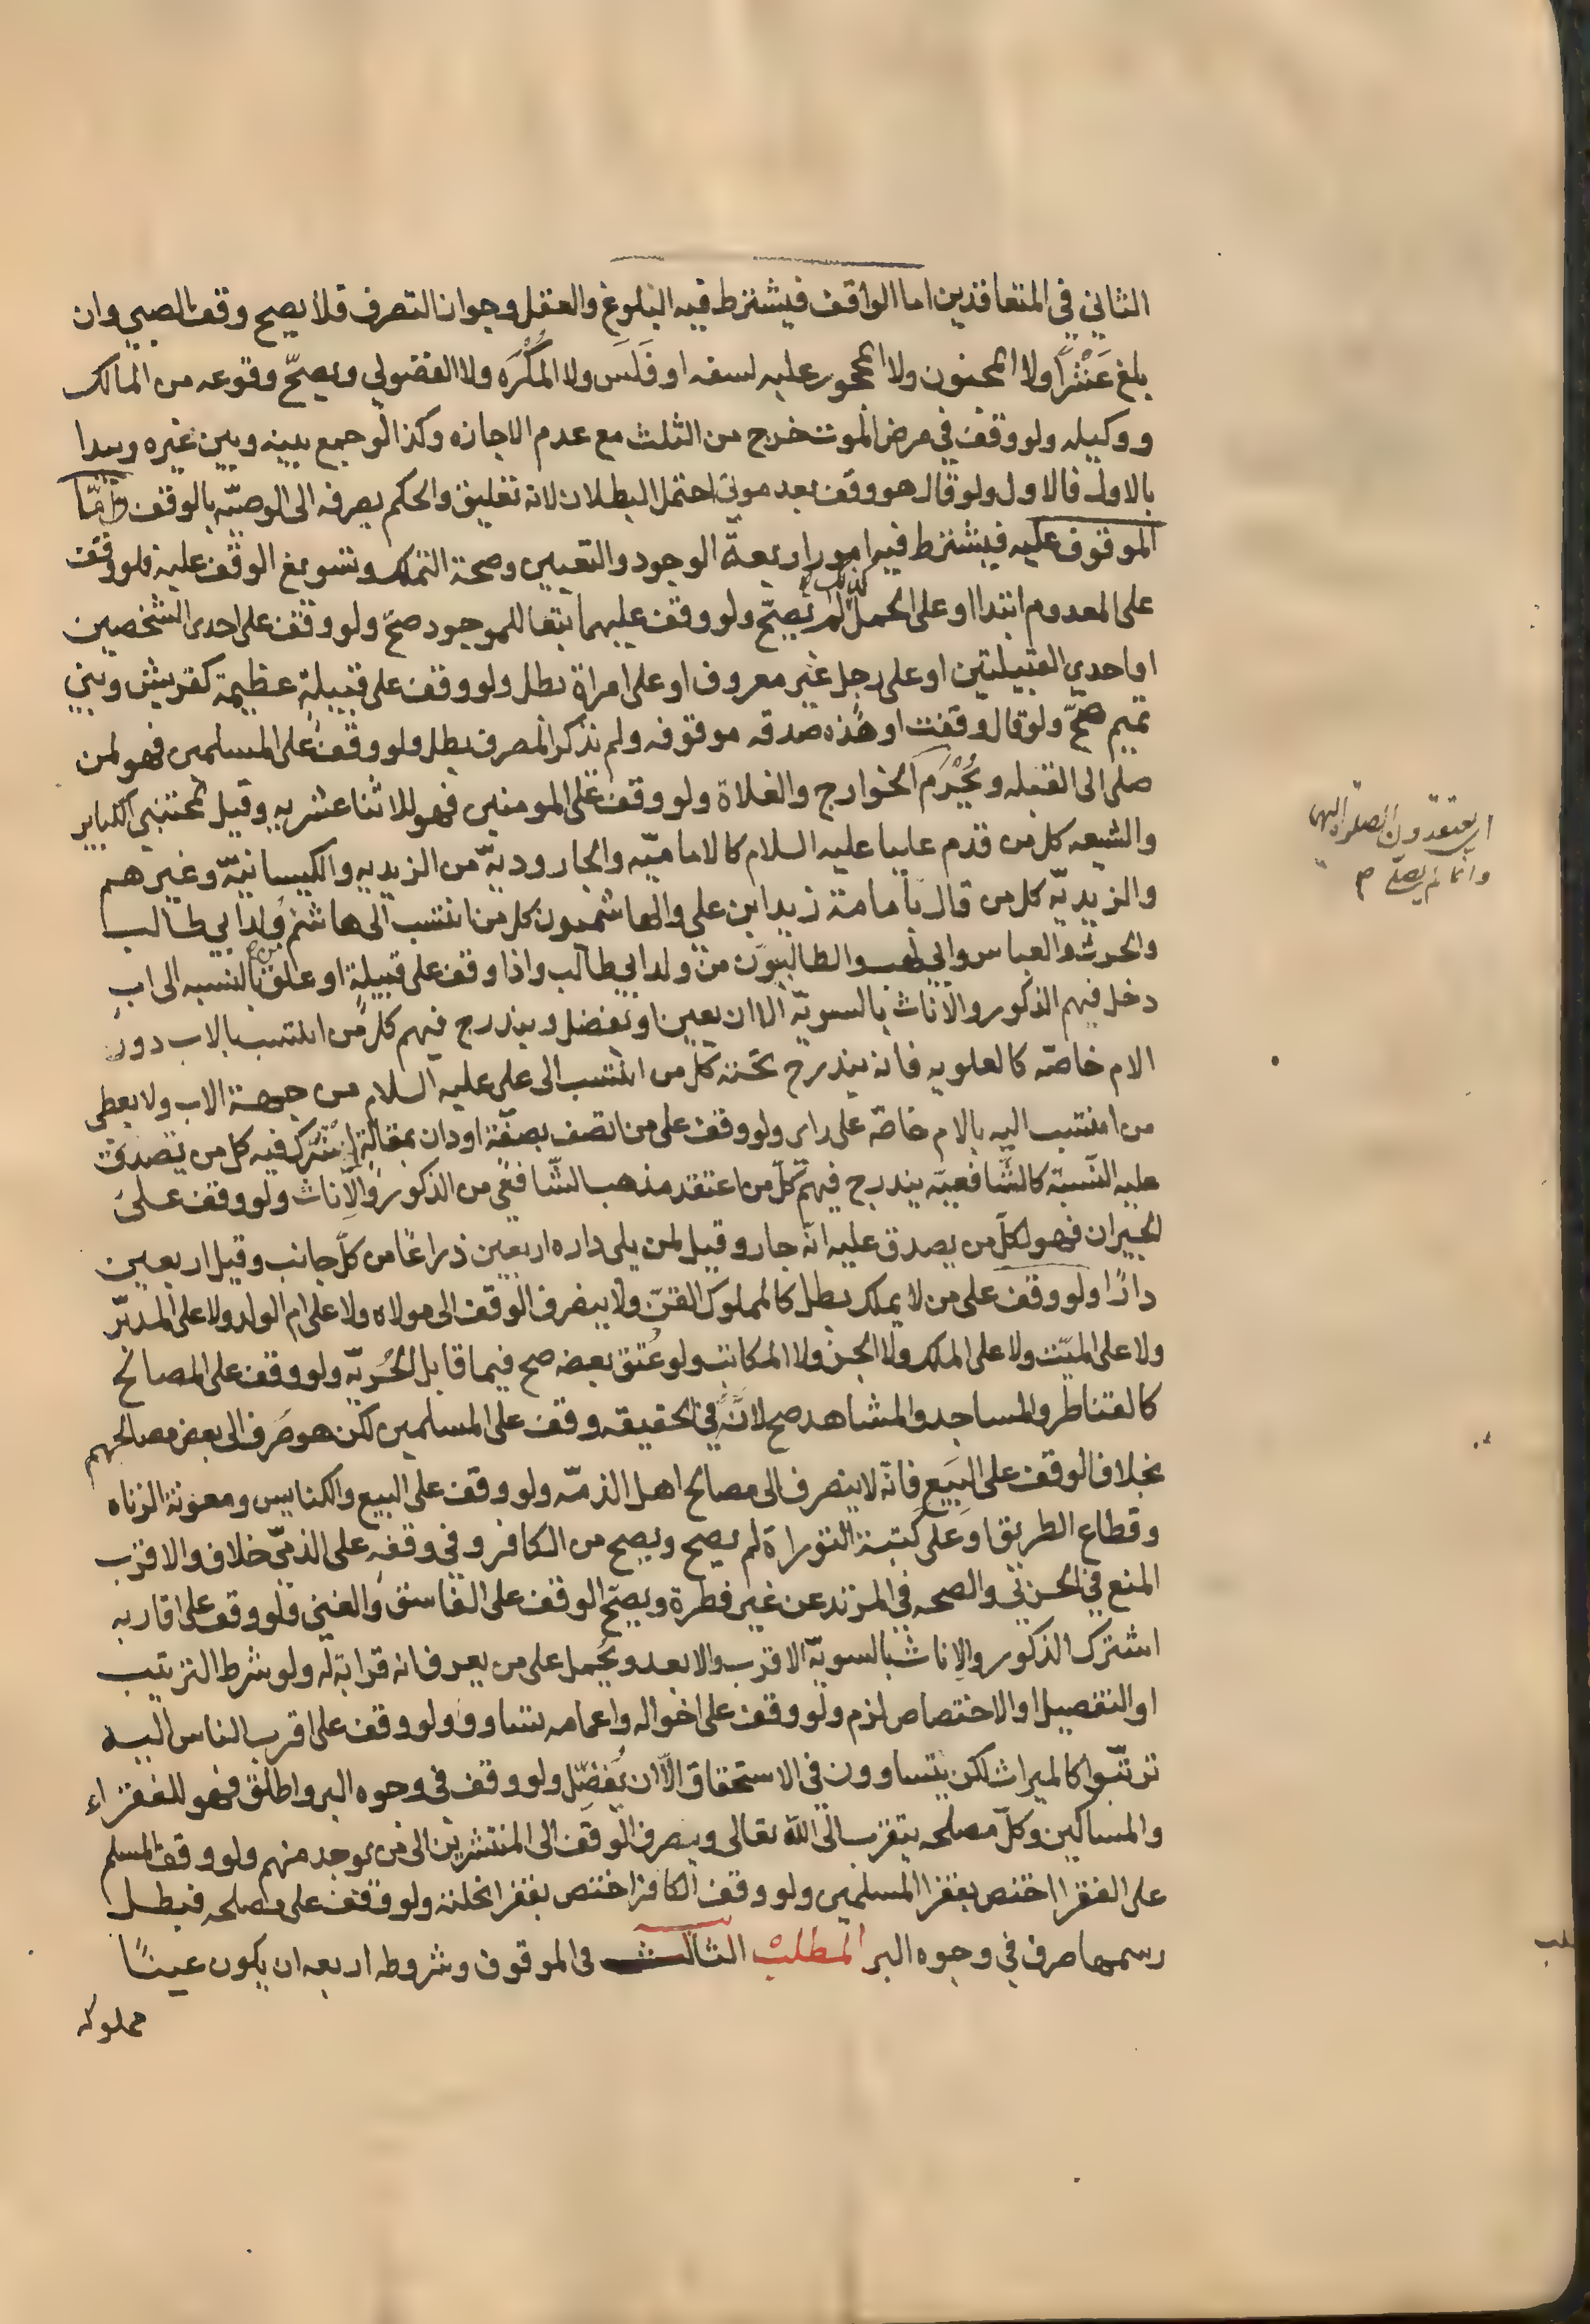 الثاني في المتعاقدين اما الواقف فيشترط فيه البلوغ والعقل وجواز التصرف فلا يصح وقف الصبي وان
بلغ عَشْرًا ولا المجنون ولا المحجور عليه لسفه او فَلَس ولا المُكْرَه ولا الفضولي ويصحّ وقوعه من المالك
ووكيله ولو وقف في مرض الموت خرج من الثلث مع عدم الاجازه وكذا لو جمع بينه وبين غيره وبدا
بالاول فالاول ولو قال هو وقف بعد موتي احتمل البطلان لانه تعليق والحكم بصرفه الى الوصيّه بالوقف وامّا
الموقوف عليه فيشترط فيه امور اربعة الوجود والتعيين وصحة التملك وتسويغ الوقف عليه فلو وقف
على المعدوم ابتدا او على الحمل لم يصحّ ولو وقف عليهما تبعا للموجود صحّ ولو وقف على احدى الشخصين
او احدي القبيلتين او على رجل غير معروف او على امراة بطل ولو وقف على قبيلة عظيمة كقريش وبني
تميم صحّ ولو قال وقفت او هذه صدقه موقوفه ولم يذكر المصرف بطل ولو وقف على المسلمين فهو لمن
صلى الى القبله ويُحْرَم الخوارج والغلاة ولو وقف على المومنين فهو للاثنا عشريه وقيل لمجتنبي الكباير
والشيعه كل من قدم عليا عليه السلام كالاماميّه والجاروديّة من الزيديه والكيسانيّة وغيرهم
والزيديّه كل من قال بامامة زيد ابن علي والهاشميون كل من انتسب الى هاشم ولد ابي طالب
والحرث والعباس وابي لهب والطالبيون من ولد ابي طالب واذا وقف على قبيلة او علق بالنسبه الى اب
دخل فيهم الذكور والاناث بالسويّه الا ان يعين او يفضل ويندرج فيهم كل من انتسب بالاب دون
الام خاصّه كالعلويه فانه يندرج تحته كل من انتسب الى على عليه السلام من جهة الاب ولا يعطى
من انتسب اليه بالام خاصّه على راى ولو وقف على من اتصف بصفة او دان بمقالة اشترك فيه كل من يصدق
عليه النسبة كالشافعيّه يندرج فيهم كلّ من اعتقد مذهب الشّافعي من الذكور والاناث ولو وقف على
الجيران فهو لكلّ من يصدق عليه انّه جار وقيل لمن يلى داره اربعين ذراعًا من كلّ جانب وقيل اربعين
دارًا ولو وقف على من لا يملك بطل كالمملوك القنّ ولا ينصرف الوقف الى مولاه ولا على ام الولد ولا على المدبّر
ولا على الميّت ولا على الملك ولا الجن ولا المكاتب ولو عُتق بعضه صح فيما قابل الحُريّه ولو وقف على المصالح
كالقناطر والمساجد والمشاهد صح لانّه في الحقيقه وقف على المسلمين لكن هو صَرف الى بعض مصالحهم
بخلاف الوقف على البِيَع فانّه لا ينصرف الى مصالح اهل الذمّه ولو وقف على البيع والكنايس ومعونة الزناه
وقطاع الطريق او على كتبة التوراة لم يصح ويصح من الكافر وفي وقفه على الذمّى خلاف والاقرب
المنع في الحربي والصحه في المرتد عن غير فطرة ويصحّ الوقف على الفاسق والغنى فلو وقف على اقاربه
اشترك الذكور والاناث بالسويّه الاقرب والابعد ويُحمل على من يعرف انه قرابة له ولو شرط الترتيب
او التفضيل او الاختصاص لزم ولو وقف على اخواله واعمامه تساووا ولو وقف على اقرب الناس اليه
ترتّبوا كالميراث لكن يتساوون في الاستحقاق الّا ان يُفضّل ولو وقف في وجوه البر واطلق فهو للفقراء
والمساكين وكلّ مصلحه يتقرب الى الله تعالى ويصرف الوقف الى المنتشرين الى من يوجد منهم ولو وقف المسلم
على الفقرا اختص بفقرا المسلمين ولو وقف الكافر اختص بفقرا نحلته ولو وقف على مصلحه فبطل
رسمها صرف في وجوه البر المطلب الثالث فى الموقوف وشروطه اربعه ان يكون عينًا
مملوكه
اى يعتقدون الصلوة اليها
وان لم يصل